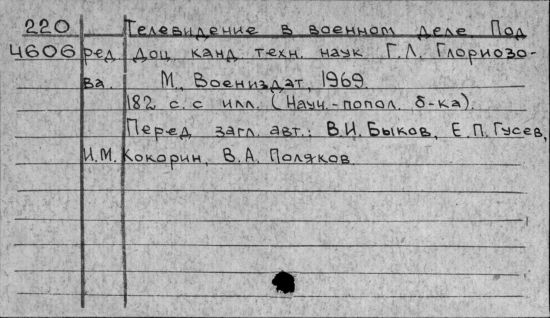 220 Телевидение в военном деле Под
4606 ред доц. канд. техн. наук Г.Л. Глориозо-
ва. М., Воениздат, 1969.
182 с. с илл. (Науч.-попол. б-ка).
Перед загл. авт.: В.И. Быков, Е.П. Гусев,
И.М. Кокорин, В.А. Поляков.